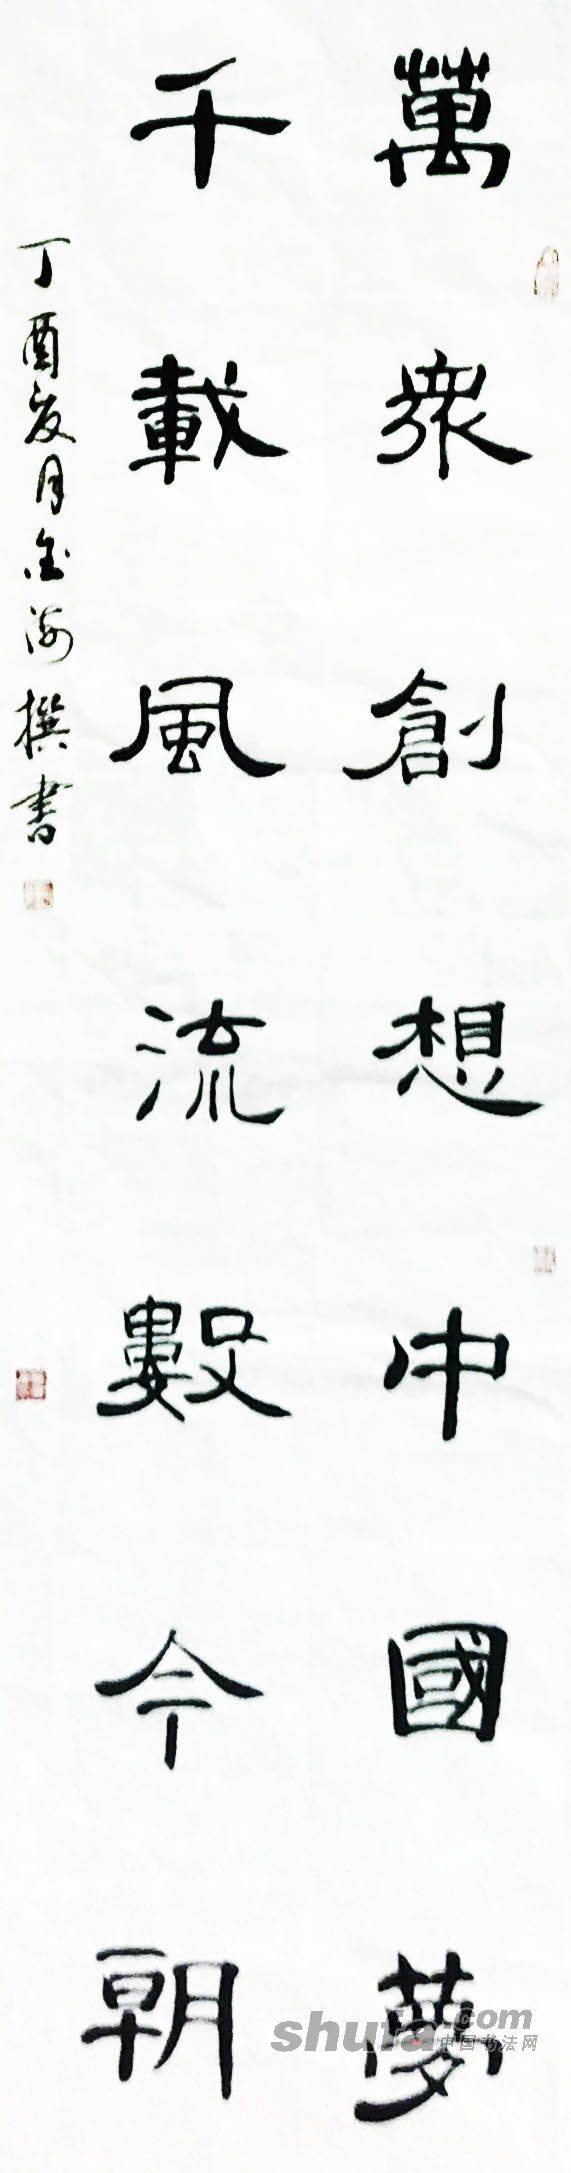 萬眾創想中國夢
千載風流數今朝
丁酉亥月金海撰書
shufa.com
中国书法网